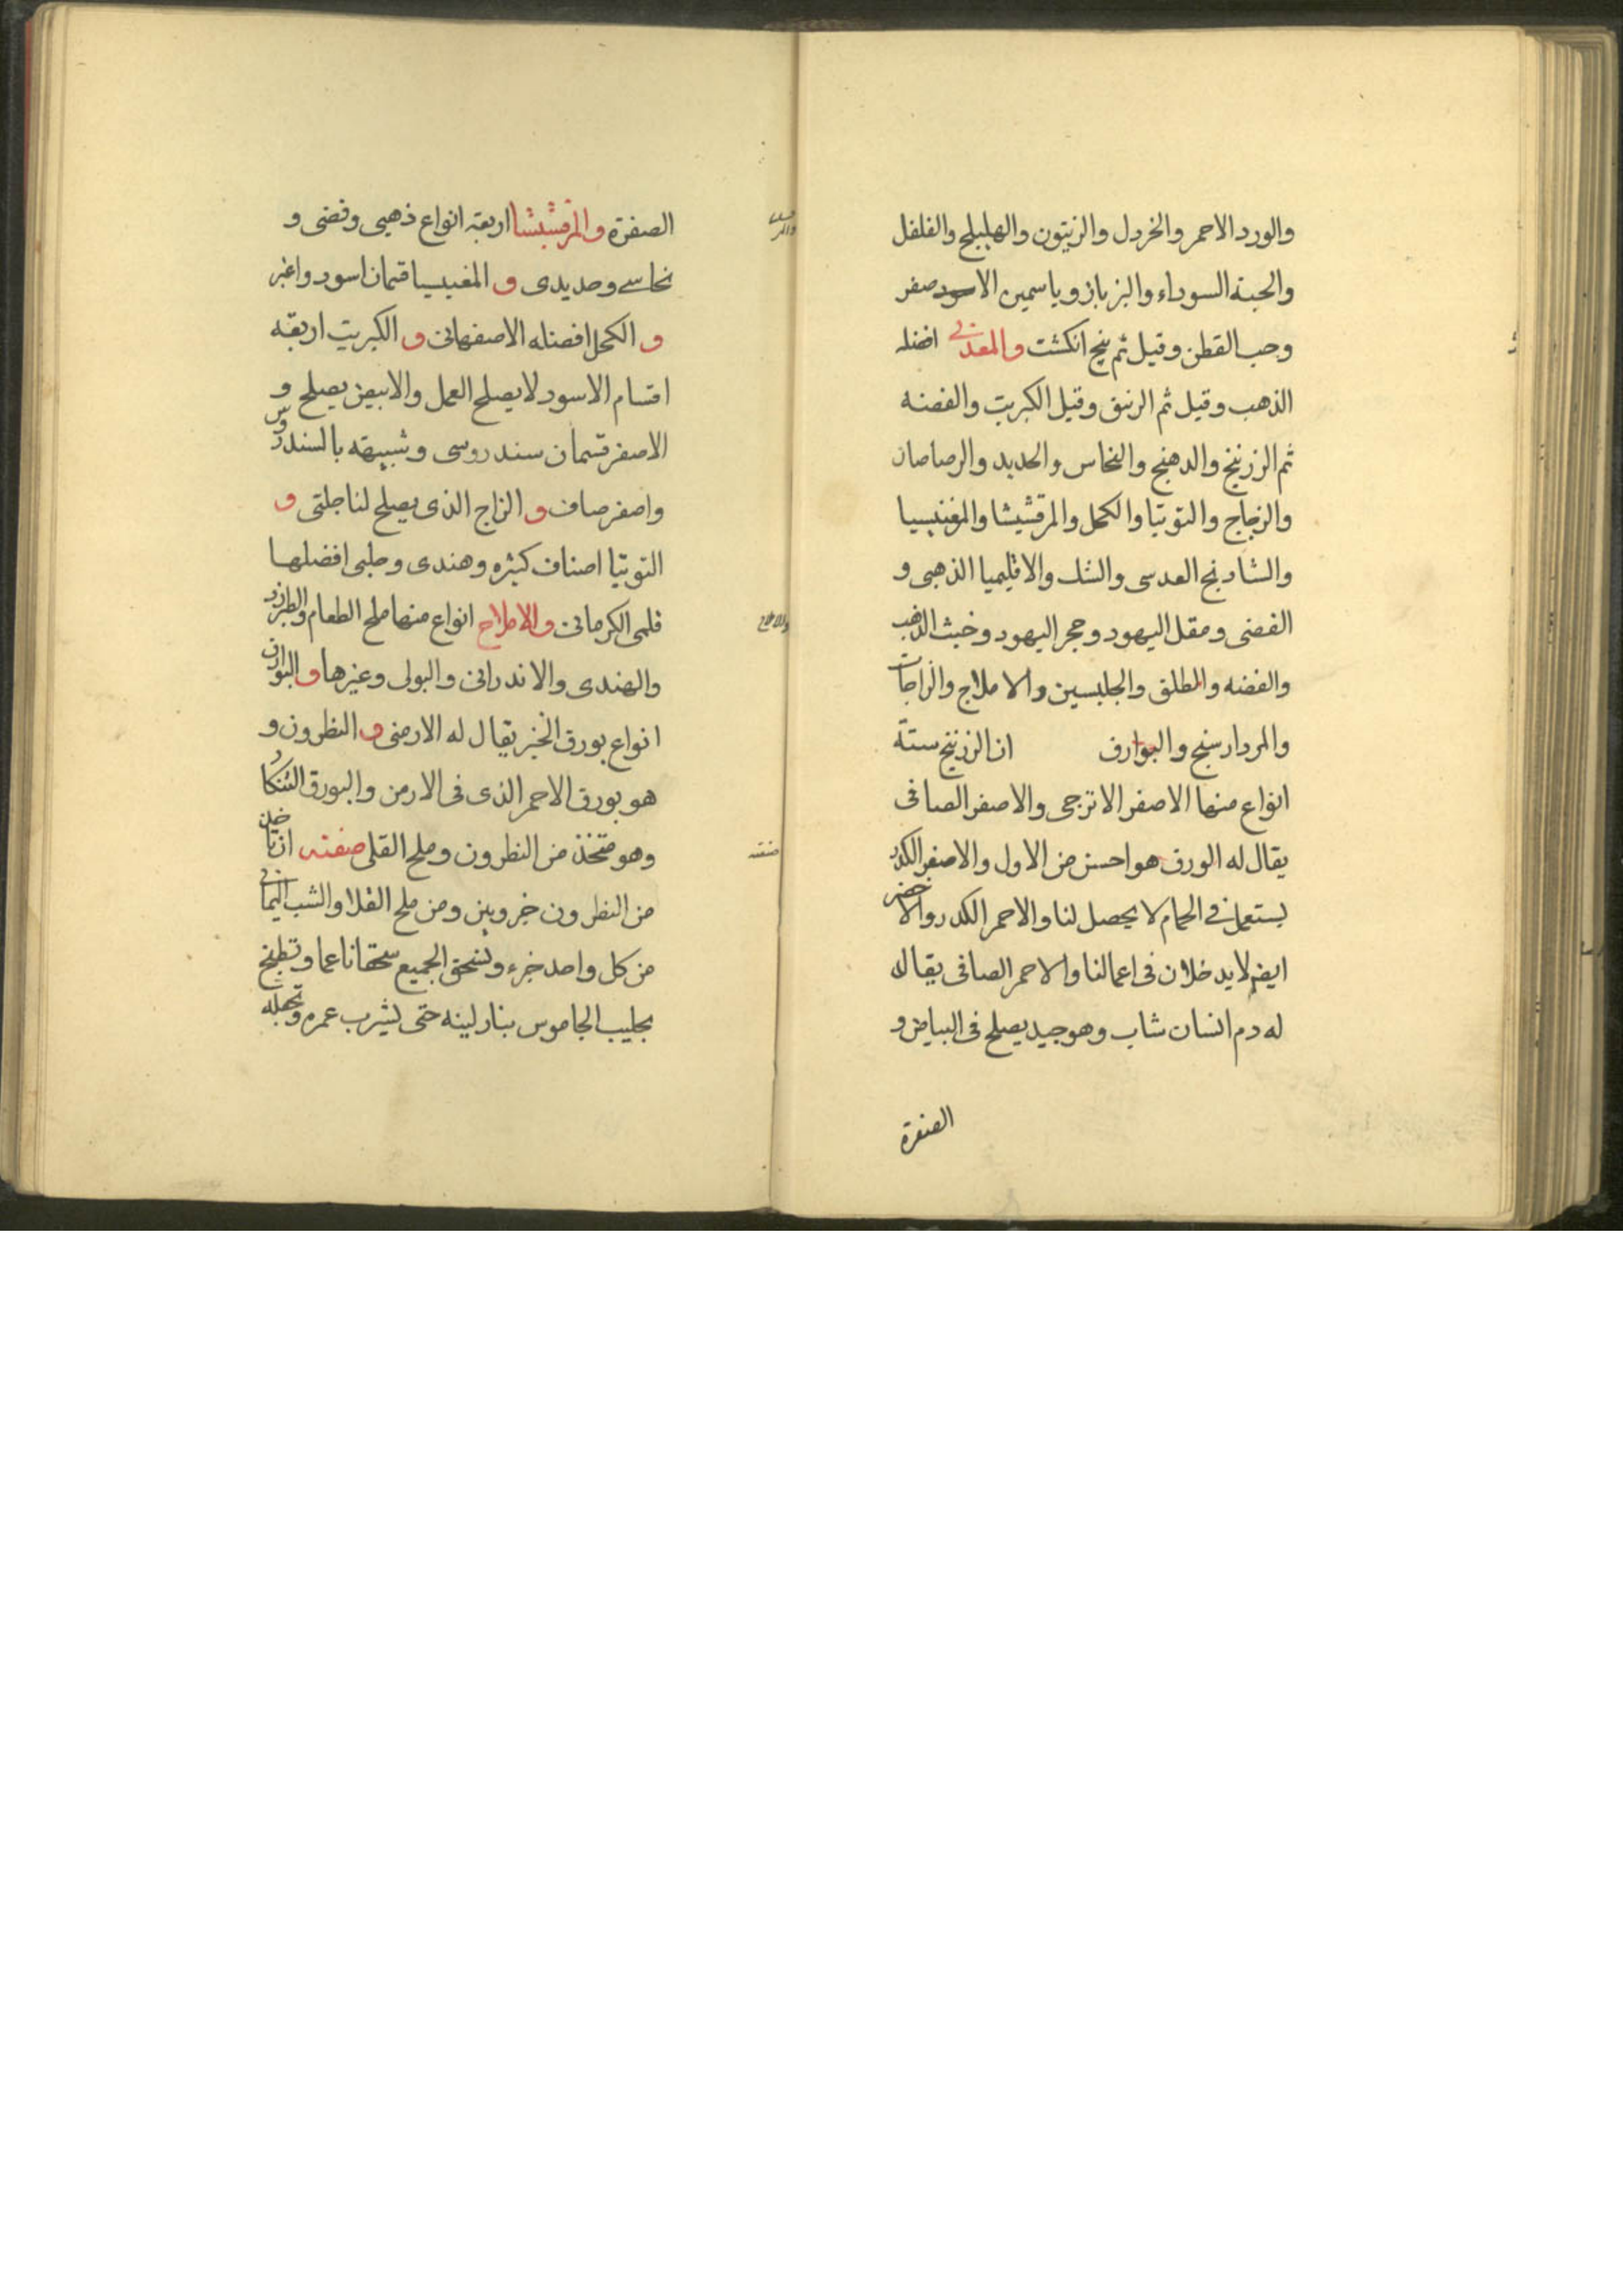 والورد الاحمر والخردل والزيتون والهليلج والفلفل
والحبة السوداء والبزباز وياسمين الاصفر
وحب القطن وقيل ثم بنج انكشت والمعدنى افضله
الذهب وقيل ثم الزيبق وقيل الكبريت والفضه
ثم الزرنيخ والدهنج والنحاس والحديد والرصاصان
والزجاج والتوتيا والكحل والمرقشيشا والمغنيسيا
والشادنج العدسى والشك والاقليميا الذهبى و
الفضى ومقل اليهود وحجر اليهود وخبث الذهب
والفضه والطلق والجلبسين والاملاح والزاجات
والمردارسنج والبوارق ان الزرنيخ ستة
انواع منها الاصفر الاترجى والاصفر الصافى
يقال له الورق هو احسن من الاول والاصفر الكدر
يستعمل فى الحمام لا يحصل لنا والاحمر الكدر والاخضر
ايضم لا يدخلان فى اعمالنا والاحمر الصافى يقال
له دم انسان شاب وهو جيد يصلح فى البياض و
الصفرة
الصفرة والمرقشيشا اربعة انواع ذهبى وفضى و
نحاسے وحديدى و المغيسيا قسمان اسود واغبر
و الكحل افضله الاصفهانى و الكبريت اربعة
اقسام الاسود لا يصلح العمل والابيض يصلح و
الاصفر قسمان سندروسى وشبيهة بالسندروس
واصفر صاف و الزاج الذى يصلح لنا جلتى و
التوتيا اصناف كثيره وهندى وحلبى افضلها
قلمى الكرمانى والاملاح انواع منها ملح الطعام والطبرزد
والهندى والاندرانى والبولى وغيرها و البوارق
انواع بورق الخبز يقال له الارمنى و النطرون و
هو بورق الاحمر الذى فى الارمن والبورق التنكار
وهو متخذ من النطرون وملح القلى صفته ان ياخذ
من النطرون جزوين ومن ملح القلا والشب اليمانى
من كل واحد جزء وتسحق الجميع سحقا ناعما وتطبخ
بحليب الجاموس بنار لينه حتى يشرب عمره وتجعله
والاملاح
صفته